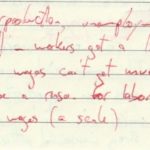 rproduction, unemploy-
- workers get a
wages can't get much
be a rise. for labor
wages (a scale)